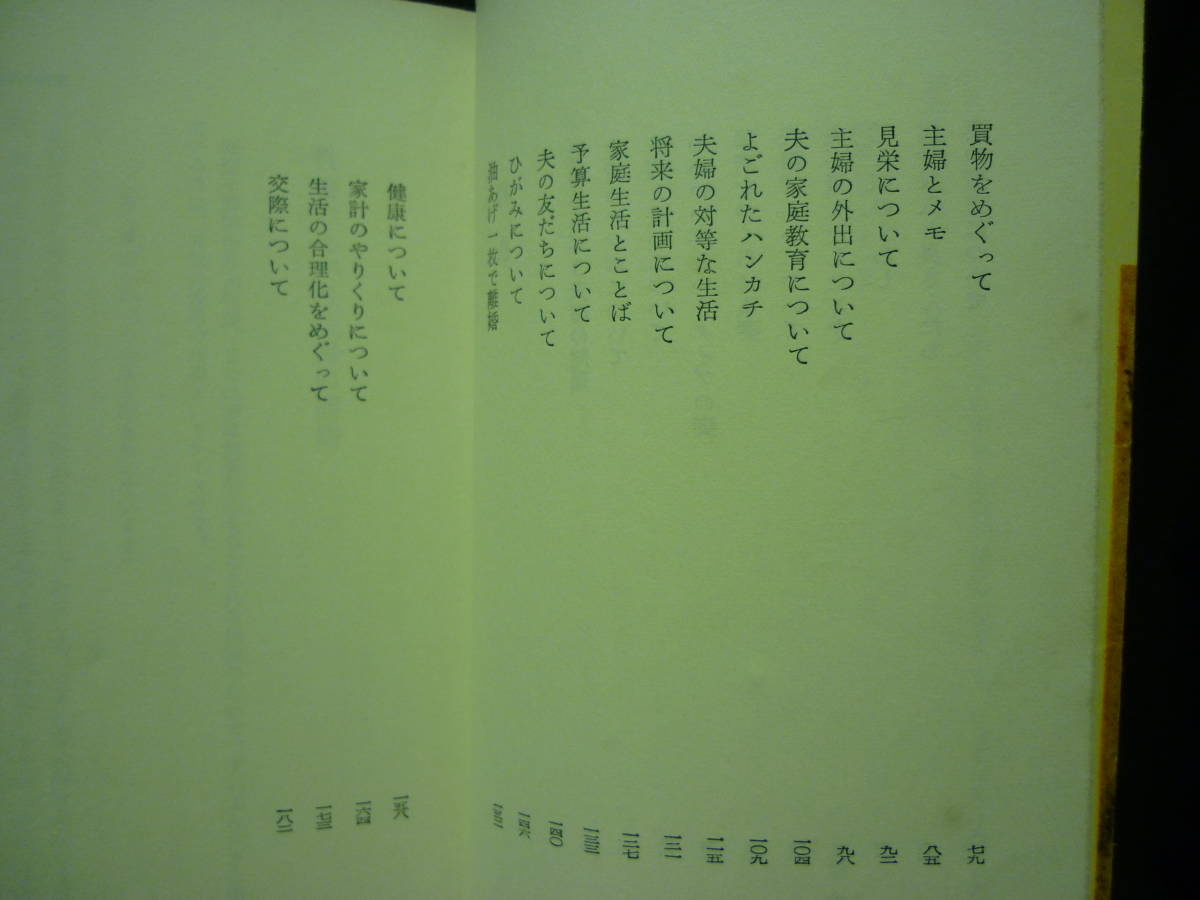 買物をめぐって 七九
主婦とメモ 八五
見栄について 九二
主婦の外出について 九八
夫の家庭教育について 一〇四
よごれたハンカチ 一〇九
夫婦の対等な生活 一一五
将来の計画について 一二一
家庭生活とことば 一二七
予算生活について 一三三
夫の友だちについて 一四〇
ひがみについて 一四六
油あげ一枚で離婚 一五二
健康について 一五八
家計のやりくりについて 一六四
生活の合理化をめぐって 一七三
交際について 一八二